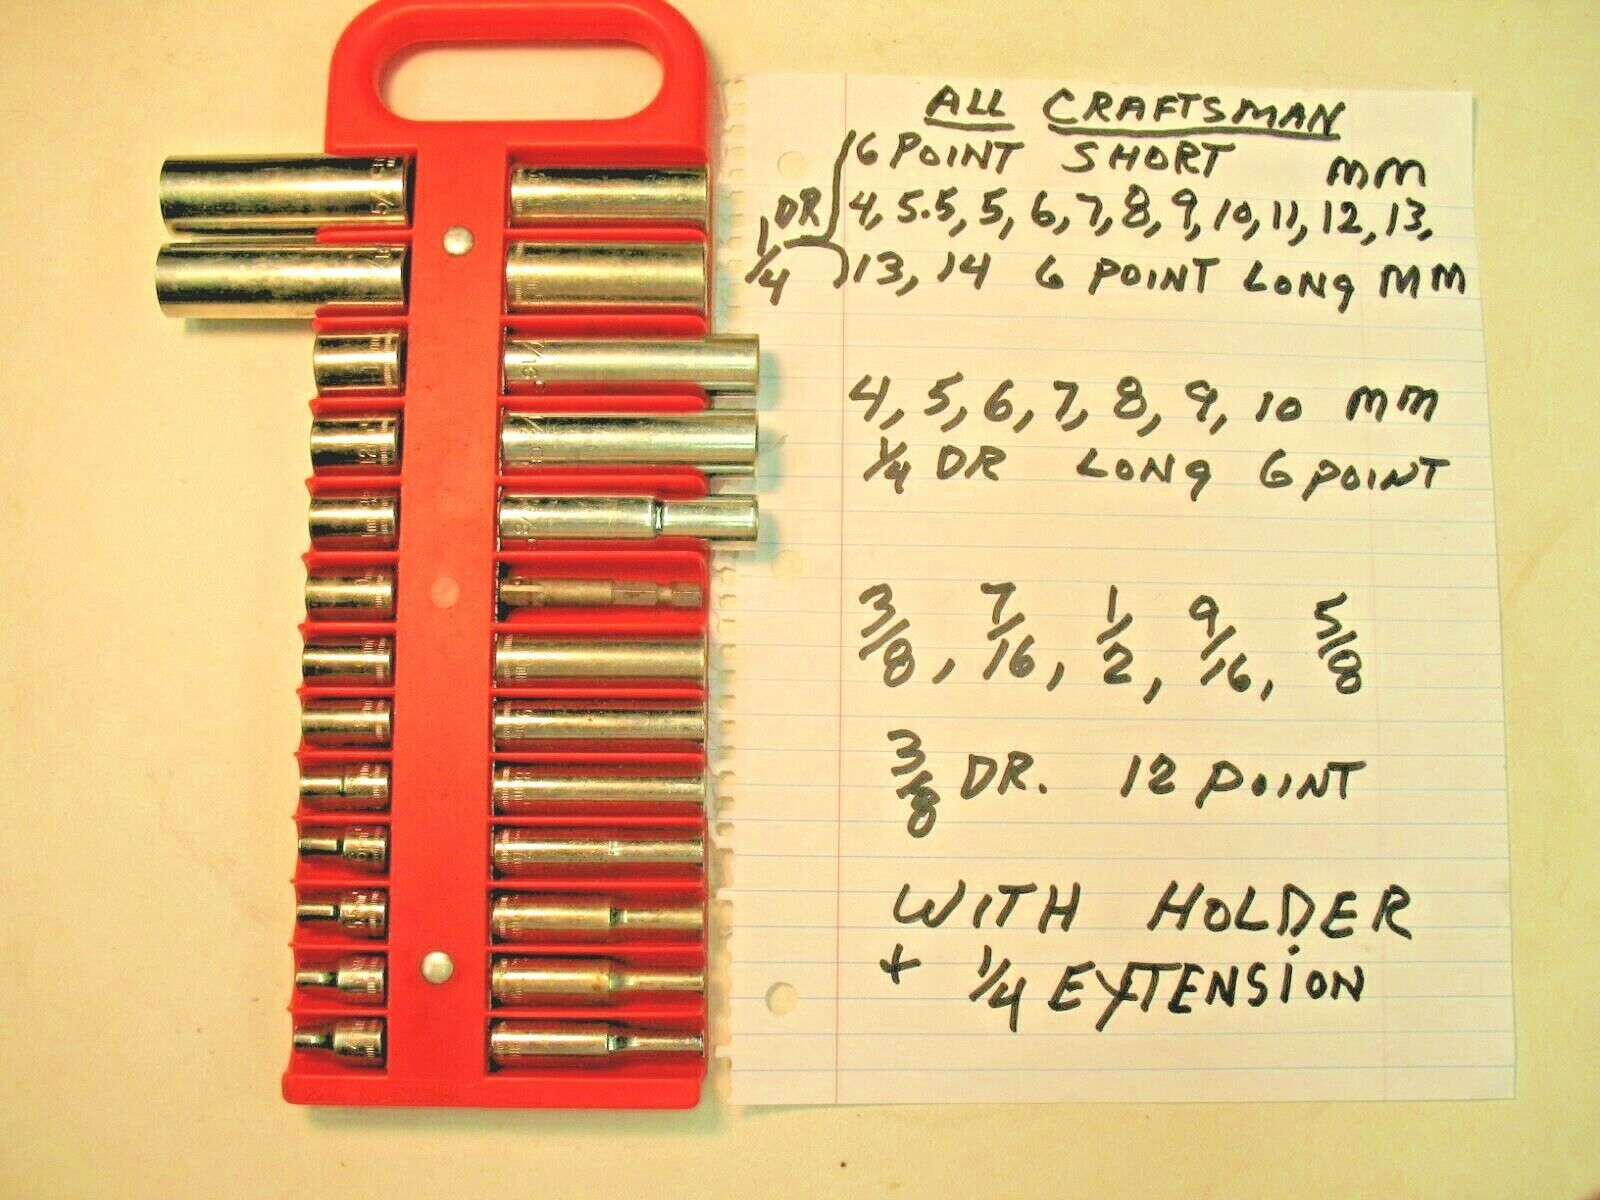 ALL CRAFTSMAN
6 POINT SHORT MM
1/4 DR 4, 5.5, 5, 6, 7, 8, 9, 10, 11, 12, 13,
13, 14 6 POINT LONG MM
4, 5, 6, 7, 8, 9, 10 MM
1/4 DR LONG 6 POINT
3/8, 7/16, 1/2, 9/16, 5/8
3/8 DR. 12 POINT
WITH HOLDER
+ 1/4 EXTENSION